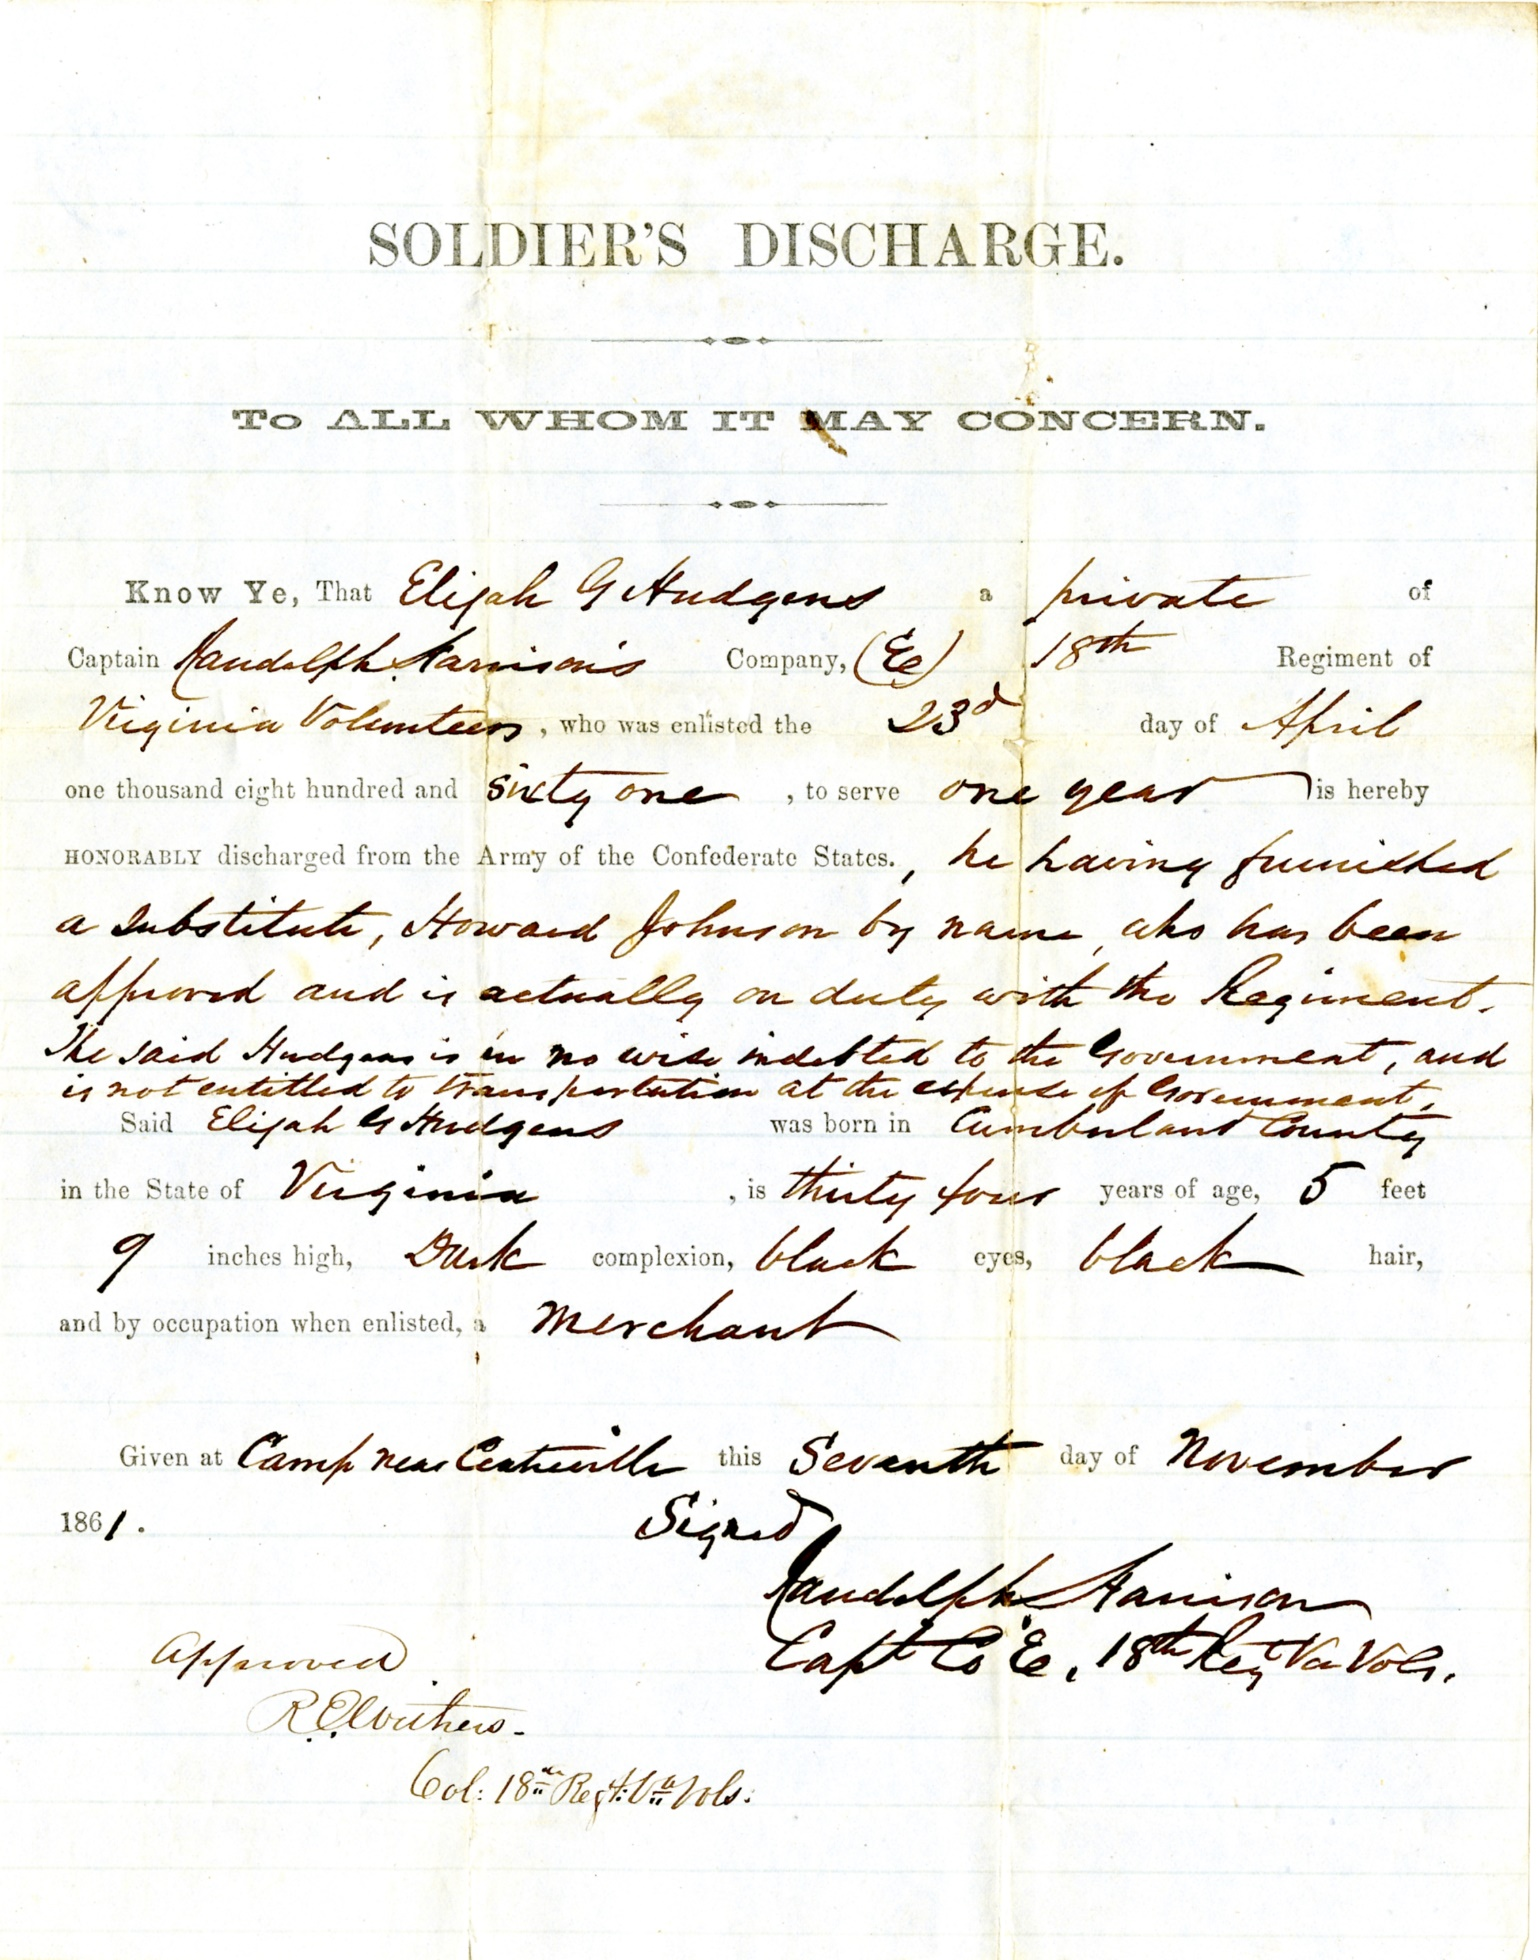 SOLDIER'S DISCHARGE.
TO ALL WHOM IT MAY CONCERN.
Know Ye, That Elijah G Hudgens a private of
Captain Randolph Harrison's Company, (E) 18th Regiment of
Virginia Volunteers, who was enlisted the 23d day of April
one thousand eight hundred and sixty one, to serve one year is hereby
HONORABLY discharged from the Army of the Confederate States., he having furnished
a substitute, Howard Johnson by name, who has been
approved and is actually on duty with the Regiment.
The said Hudgens is in no wise indebted to the Government, and
is not entitled to transportation at the expense of Government.
Said Elijah G Hudgens was born in Cumberland County
in the State of Virginia, is thirty four years of age, 5 feet
9 inches high, Dark complexion, black eyes, black hair,
and by occupation when enlisted, a Merchant
Given at Camp near Centreville this Seventh day of November
1861.
Signed
Randolph Harrison
Capt Co E, 18th Reg Va Vols.
Approved
R.E. Withers.
Col: 18th Regt: Va Vols: